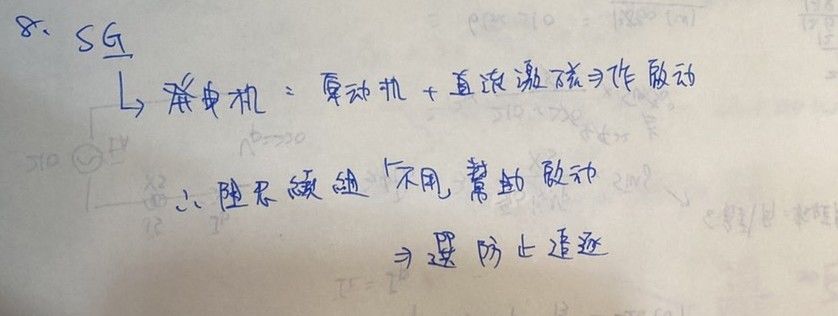 8. SG
↳ 發电机：原动机 + 直流激磁 ⇒ 作啟动
∴ 阻尼繞組「不用」幫助啟动
⇒ 選防止追逐